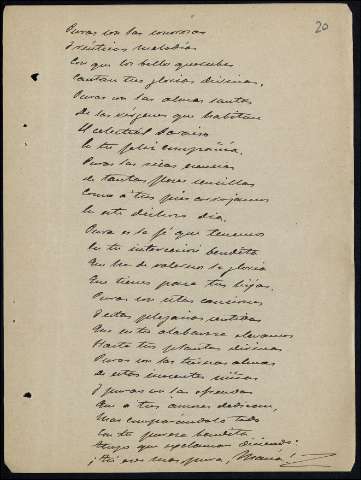 20
Puras son las sonoras
Y rústicas melodías
Con que los bellos querubes
Cantan tus glorias divinas.
Puras son las almas santas
De las vírgenes que habitan
El celestial Paraíso
En tu feliz compañía.
Puras las ricas
de tantas flores sencillas
Como á tus pies arrojamos
En este dichoso día.
Pura es la fé que tenemos
En tu intercesión bendita
Que ha de valernos la gloria
Que tienes para tus hijas.
Puras son estas canciones
Y estas plegarias sentidas
Que en tus alabanzas elevamos
Hasta tus plantas divinas
Puras son las tiernas almas
de estas inocentes niñas
Y puras son las ofrendas
Que á tus amores dedican,
Mas comparándolo todo
Con tu pureza bendita
Tengo que exclamar diciendo:
¡Tú eres mas pura, María!